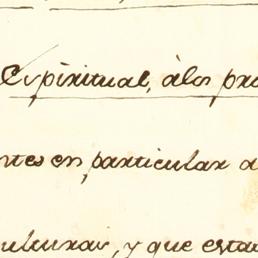 Espiritual, álos pro
ntes en particular a
ulturas, y que esta